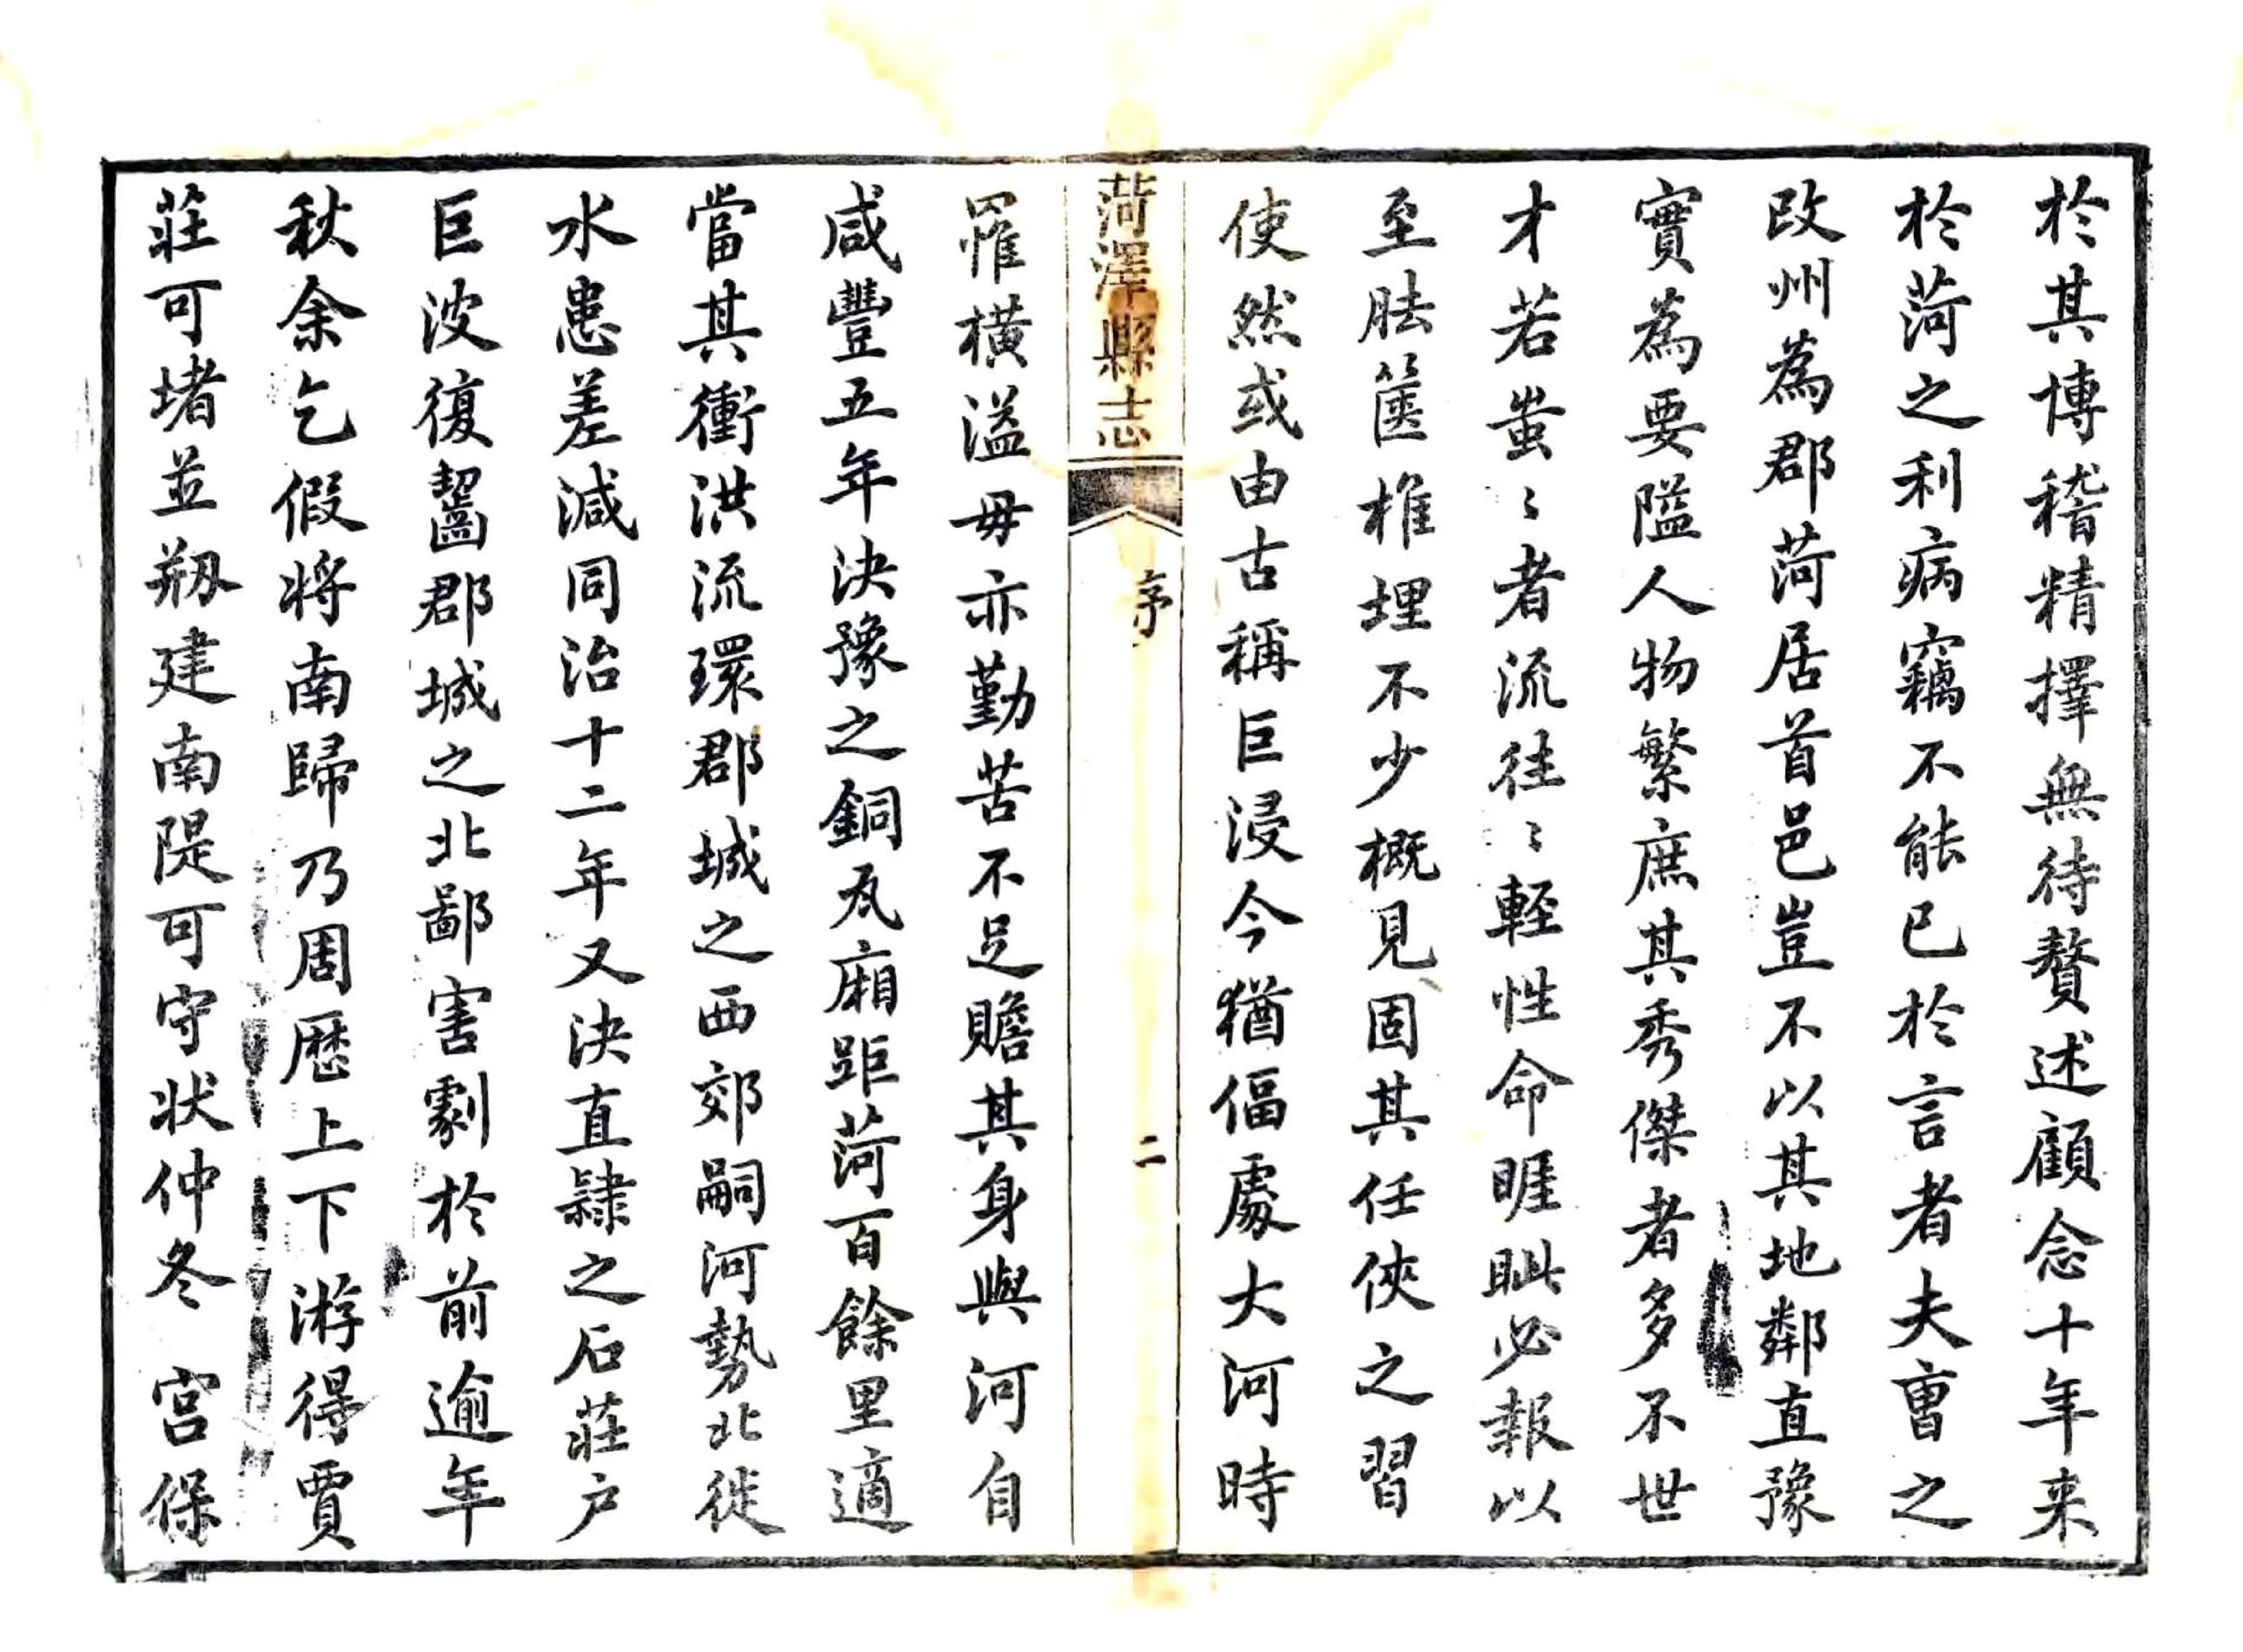 於其博稽精擇無待贅述顧念十年来
於菏之利病竊不能已於言者夫曹之
改州為郡菏居首邑豈不以其地鄰直豫
實為要隘人物繁庶其秀傑者多不世
才若蚩〻者流往〻輕性命睚眦必報以
至胠篋椎埋不少概見固其任俠之習
使然或由古稱巨浸今猶偪處大河時
菏澤縣志
序
二
罹橫溢毋亦勤苦不足贍其身與河自
咸豐五年決豫之銅瓦廂距菏百餘里適
當其衝洪流環郡城之西郊嗣河勢北徙
水患差減同治十二年又決直隸之石莊户
巨波復齧郡城之北鄙害劇於前逾年
秋余乞假将南歸乃周歷上下游得賈
莊可堵並剏建南隄可守状仲冬宫保